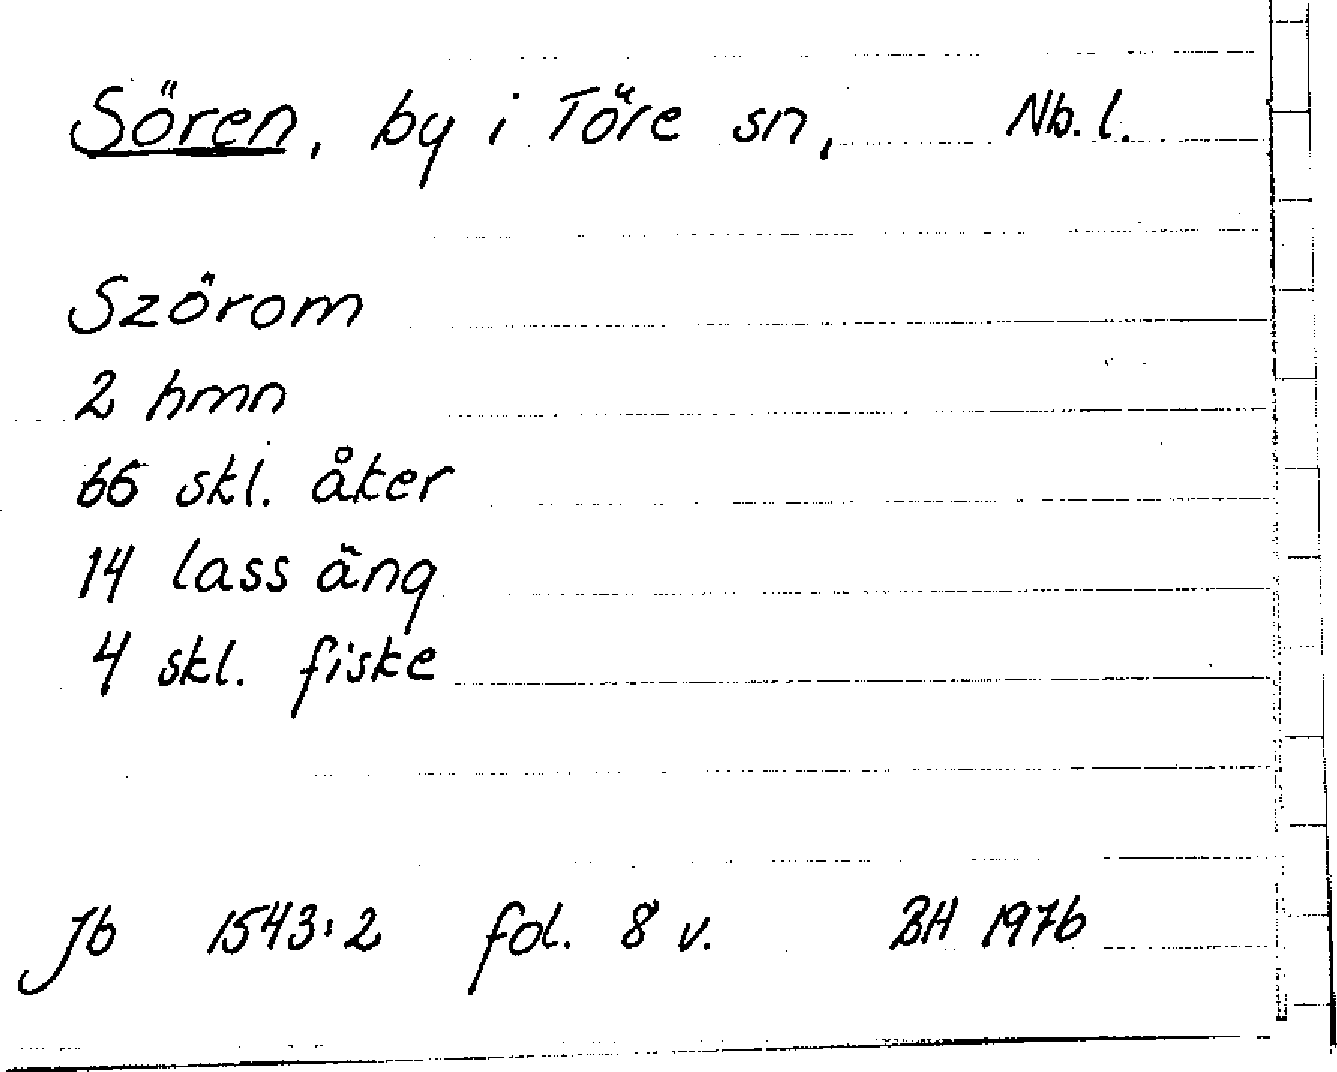 Sören, by i Töre sn, Nb. l.
Szörom
2 hmn
66 skl. åker
14 lass äng
4 skl. fiske
Jb 1543:2 fol. 8 v. BH 1976